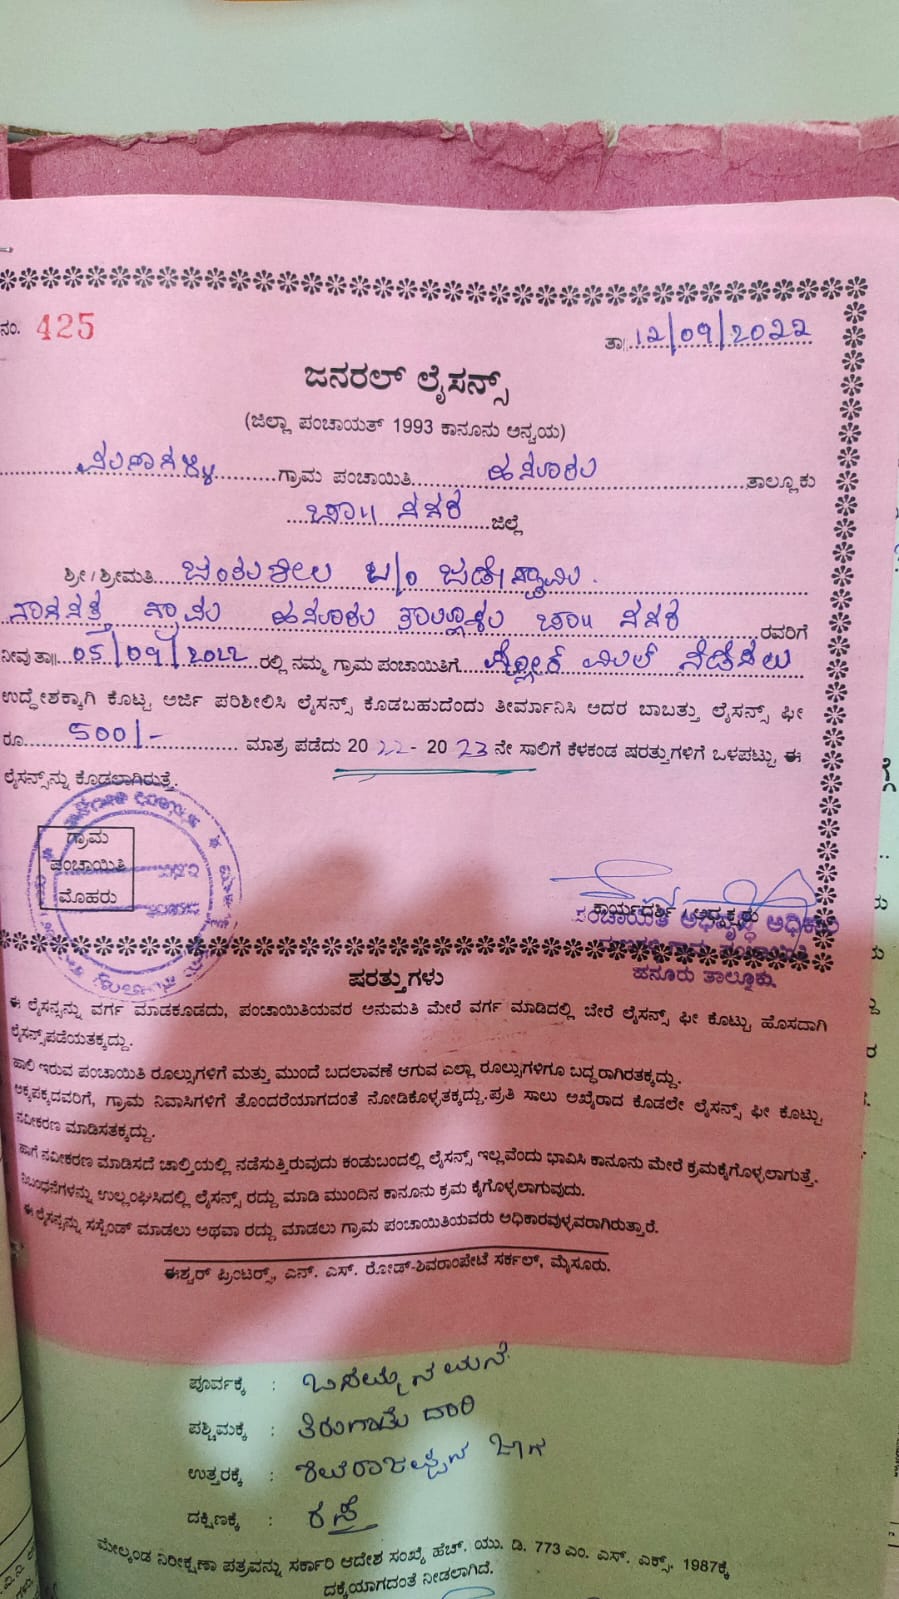 ನಂ. 425
ತಾ॥ 12/09/2022
ಜನರಲ್ ಲೈಸನ್ಸ್
(ಜಿಲ್ಲಾ ಪಂಚಾಯತ್ 1993 ಕಾನೂನು ಅನ್ವಯ)
ಗ್ರಾಮ ಪಂಚಾಯಿತಿ ಹನೂರು ತಾಲ್ಲೂಕು
ಚಾ॥ ನಗರ ಜಿಲ್ಲೆ
ಶ್ರೀ/ಶ್ರೀಮತಿ
ಗ್ರಾಮ ಹನೂರು ತಾಲ್ಲೂಕು ಚಾ॥ ನಗರ ರವರಿಗೆ
ನೀವು ತಾ॥ 05/09/2022 ರಲ್ಲಿ ನಮ್ಮ ಗ್ರಾಮ ಪಂಚಾಯಿತಿಗೆ ಪ್ಲೋರ್ ಮಿಲ್ ನೆಡೆಸಲು
ಉದ್ಧೇಶಕ್ಕಾಗಿ ಕೊಟ್ಟ ಅರ್ಜಿ ಪರಿಶೀಲಿಸಿ ಲೈಸನ್ಸ್ ಕೊಡಬಹುದೆಂದು ತೀರ್ಮಾನಿಸಿ ಅದರ ಬಾಬತ್ತು ಲೈಸನ್ಸ್ ಫೀ
ರೂ. 500/- ಮಾತ್ರ ಪಡೆದು 2022 - 2023 ನೇ ಸಾಲಿಗೆ ಕೆಳಕಂಡ ಷರತ್ತುಗಳಿಗೆ ಒಳಪಟ್ಟು ಈ
ಲೈಸನ್ಸ್‌ನ್ನು ಕೊಡಲಾಗಿರುತ್ತೆ.
ಗ್ರಾಮ
ಪಂಚಾಯಿತಿ
ಮೊಹರು
ಕಾರ್ಯದರ್ಶಿ / ಅಧ್ಯಕ್ಷರು
ಪಂಚಾಯಿತಿ ಅಭಿವೃದ್ಧಿ ಅಧಿಕಾರಿ
ಗ್ರಾಮ ಪಂಚಾಯಿತಿ
ಹನೂರು ತಾಲ್ಲೂಕು.
ಷರತ್ತುಗಳು
ಈ ಲೈಸನ್ಸನ್ನು ವರ್ಗ ಮಾಡಕೂಡದು, ಪಂಚಾಯಿತಿಯವರ ಅನುಮತಿ ಮೇರೆ ವರ್ಗ ಮಾಡಿದಲ್ಲಿ ಬೇರೆ ಲೈಸನ್ಸ್ ಫೀ ಕೊಟ್ಟು ಹೊಸದಾಗಿ
ಲೈಸನ್ಸ್‌ಪಡೆಯತಕ್ಕದ್ದು.
ಹಾಲಿ ಇರುವ ಪಂಚಾಯಿತಿ ರೂಲ್ಸುಗಳಿಗೆ ಮತ್ತು ಮುಂದೆ ಬದಲಾವಣೆ ಆಗುವ ಎಲ್ಲಾ ರೂಲ್ಸುಗಳಿಗೂ ಬದ್ಧರಾಗಿರತಕ್ಕದ್ದು.
ಅಕ್ಕಪಕ್ಕದವರಿಗೆ, ಗ್ರಾಮ ನಿವಾಸಿಗಳಿಗೆ ತೊಂದರೆಯಾಗದಂತೆ ನೋಡಿಕೊಳ್ಳತಕ್ಕದ್ದು.ಪ್ರತಿ ಸಾಲು ಅಖೈರಾದ ಕೊಡಲೇ ಲೈಸನ್ಸ್ ಫೀ ಕೊಟ್ಟು
ನವೀಕರಣ ಮಾಡಿಸತಕ್ಕದ್ದು.
ಹಾಗೆ ನವೀಕರಣ ಮಾಡಿಸದೆ ಚಾಲ್ತಿಯಲ್ಲಿ ನಡೆಸುತ್ತಿರುವುದು ಕಂಡುಬಂದಲ್ಲಿ ಲೈಸನ್ಸ್ ಇಲ್ಲವೆಂದು ಭಾವಿಸಿ ಕಾನೂನು ಮೇರೆ ಕ್ರಮಕೈಗೊಳ್ಳಲಾಗುತ್ತೆ.
ನಿಬಂಧನೆಗಳನ್ನು ಉಲ್ಲಂಘಿಸಿದಲ್ಲಿ ಲೈಸನ್ಸ್ ರದ್ದು ಮಾಡಿ ಮುಂದಿನ ಕಾನೂನು ಕ್ರಮ ಕೈಗೊಳ್ಳಲಾಗುವುದು.
ಈ ಲೈಸನ್ಸನ್ನು ಸಸ್ಪೆಂಡ್ ಮಾಡಲು ಅಥವಾ ರದ್ದು ಮಾಡಲು ಗ್ರಾಮ ಪಂಚಾಯಿತಿಯವರು ಅಧಿಕಾರವುಳ್ಳವರಾಗಿರುತ್ತಾರೆ.
ಈಶ್ವರ್ ಪ್ರಿಂಟರ್ಸ್, ಎನ್. ಎಸ್. ರೋಡ್-ಶಿವರಾಂಪೇಟೆ ಸರ್ಕಲ್, ಮೈಸೂರು.
ಪೂರ್ವಕ್ಕೆ : ಬಸಮ್ಮನ ಮನೆ
ಪಶ್ಚಿಮಕ್ಕೆ : ತಿರುಗಾಡು ದಾರಿ
ಉತ್ತರಕ್ಕೆ : ಶಿವರಾಜಪ್ಪನ ಜಾಗ
ದಕ್ಷಿಣಕ್ಕೆ : ರಸ್ತೆ
ಮೇಲ್ಕಂಡ ನಿರೀಕ್ಷಣಾ ಪತ್ರವನ್ನು ಸರ್ಕಾರಿ ಆದೇಶ ಸಂಖ್ಯೆ ಹೆಚ್. ಯು. ಡಿ. 773 ಎಂ. ಎಸ್. ಎಕ್ಸ್. 1987ಕ್ಕೆ
ದಕ್ಕೆಯಾಗದಂತೆ ನೀಡಲಾಗಿದೆ.